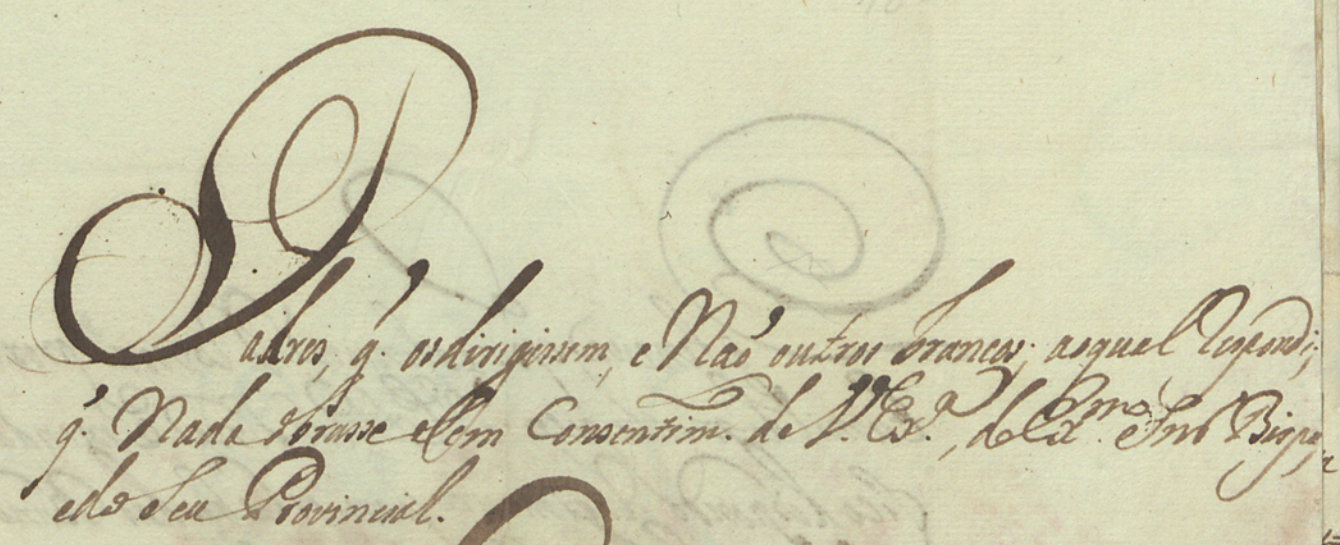 Padres, q̃. os dirigissem, e Naõ outros brancos; aoqual Respondi;
q̃. Nada obrasse Sem Consentim.to de V. Ex.ª, do Ex.mo Snr Bispo,
edo Seu Provincial.